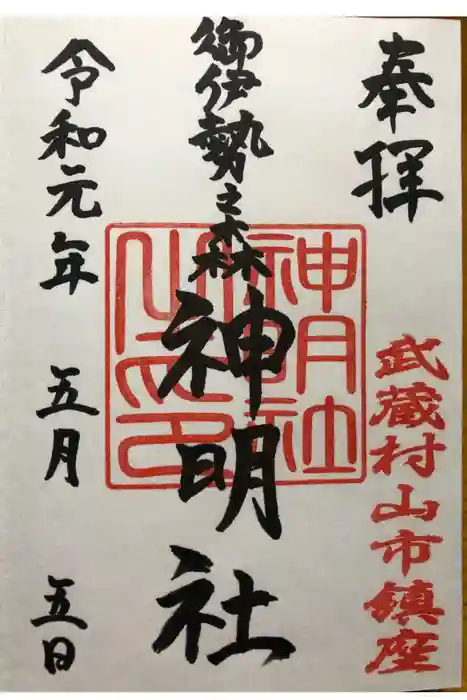 奉拝
武蔵村山市鎮座
御伊勢之森
神明社
神明社
之印
令和元年 五月 五日